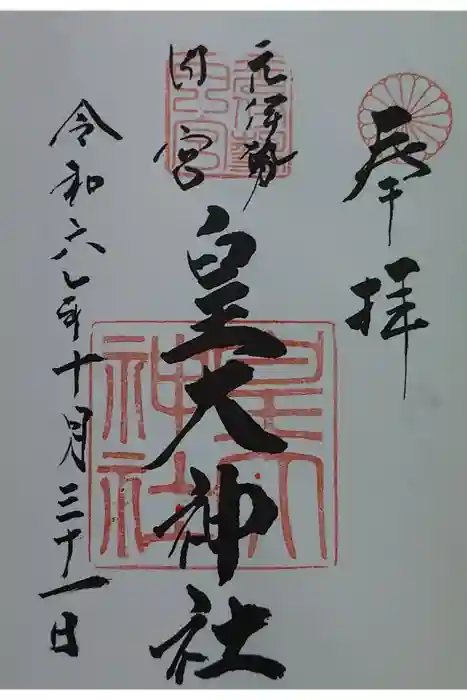 奉拝
元伊勢
内宮
皇大神社
令和六年十月三十一日
皇大神社